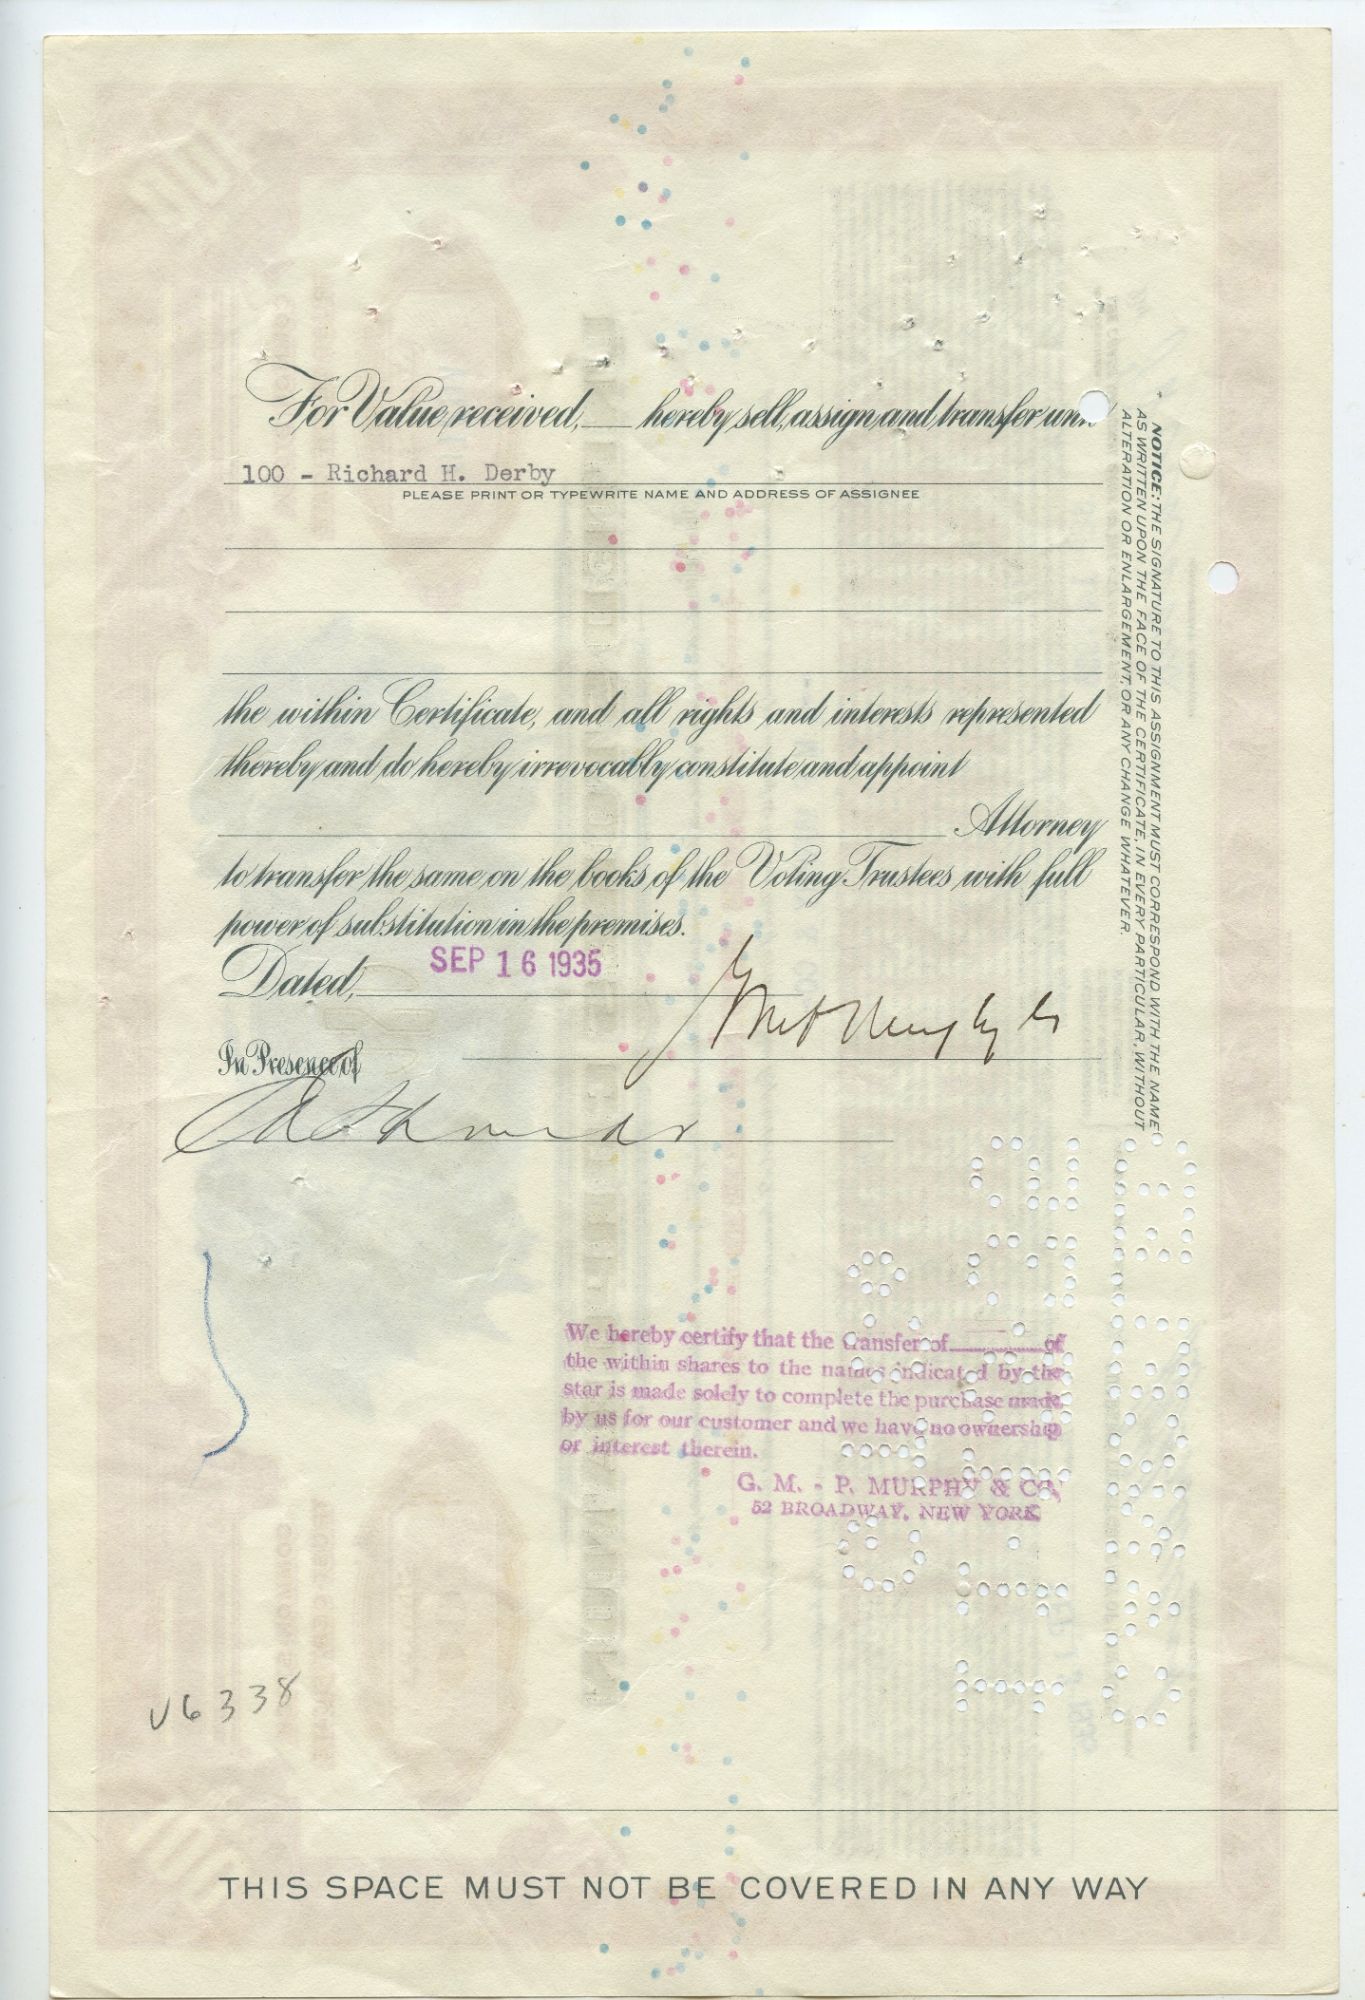 For Value received, ___ hereby sell, assign and transfer unto
100 - Richard H. Derby
PLEASE PRINT OR TYPEWRITE NAME AND ADDRESS OF ASSIGNEE
the within Certificate, and all rights and interests represented
thereby and do hereby irrevocably constitute and appoint
Attorney
to transfer the same on the books of the Voting Trustees with full
power of substitution in the premises.
Dated, SEP 16 1935
In Presence of
We hereby certify that the transfer of ........ of
the within shares to the names indicated by the
star is made solely to complete the purchase made
by us for our customer and we have no ownership
or interest therein.
G. M. - P. MURPHY & CO.
52 BROADWAY, NEW YORK
V6338
THIS SPACE MUST NOT BE COVERED IN ANY WAY
NOTICE: THE SIGNATURE TO THIS ASSIGNMENT MUST CORRESPOND WITH THE NAME
AS WRITTEN UPON THE FACE OF THE CERTIFICATE, IN EVERY PARTICULAR, WITHOUT
ALTERATION OR ENLARGEMENT, OR ANY CHANGE WHATEVER.